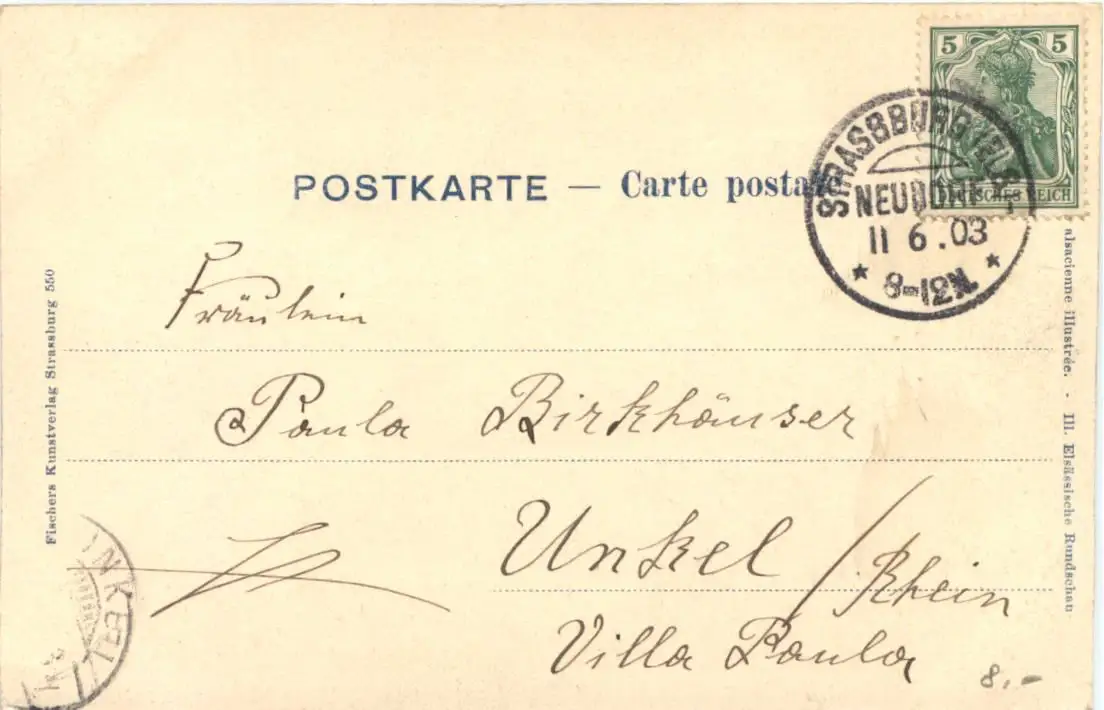 5 5
DEUTSCHES REICH
STRASSBURG (ELS)
NEUDORF
11 6 . 03
* 8-12N. *
POSTKARTE — Carte postale
Fräulein
Paula Birkhäuser
Unkel / Rhein
Villa Paula
8.-
Fischers Kunstverlag Strassburg 550
alsacienne illustrée. · Ill. Elsässische Rundschau
UNKEL